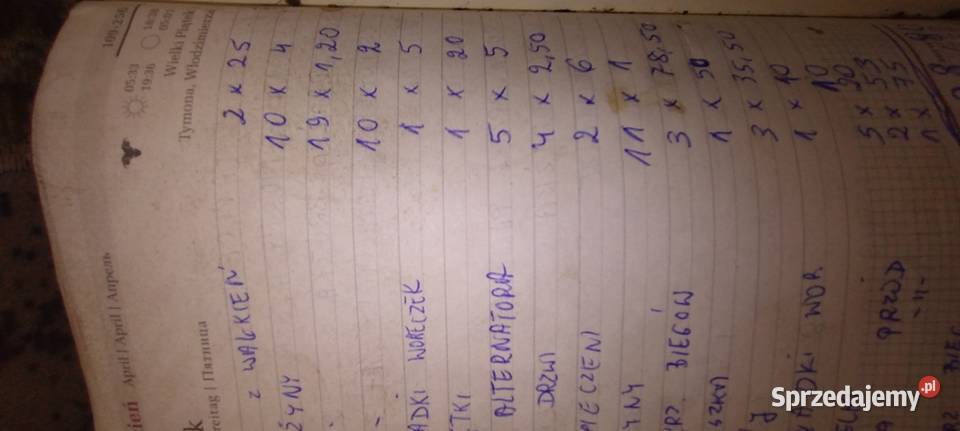 109-256
05:33 14:38
19:36 05:01
Wielki Piątek
Tymona, Włodzimierza
ień April | April | Апрель
k reitag | Пятница
Z WAŁKIEŃ 2 x 25
ŻYNY 10 x 4
19 x 1,20
- 10 x 2
ADKI WORECZEK 1 x 5
ETKI 1 x 20
ALTERNATORA 5 x 5
DRZWI 4 x 2,50
PIECZENI 2 x 6
YNY 11 x 1
RZ. BIEGÓW 3 x 78,50
SZKA 1 x 50
3 x 35,50
ADKI WOR 1 x 10
10
30
5 x 53
PRZÓD 2 x 75
-"- 1 x
Sprzedajemy.pl